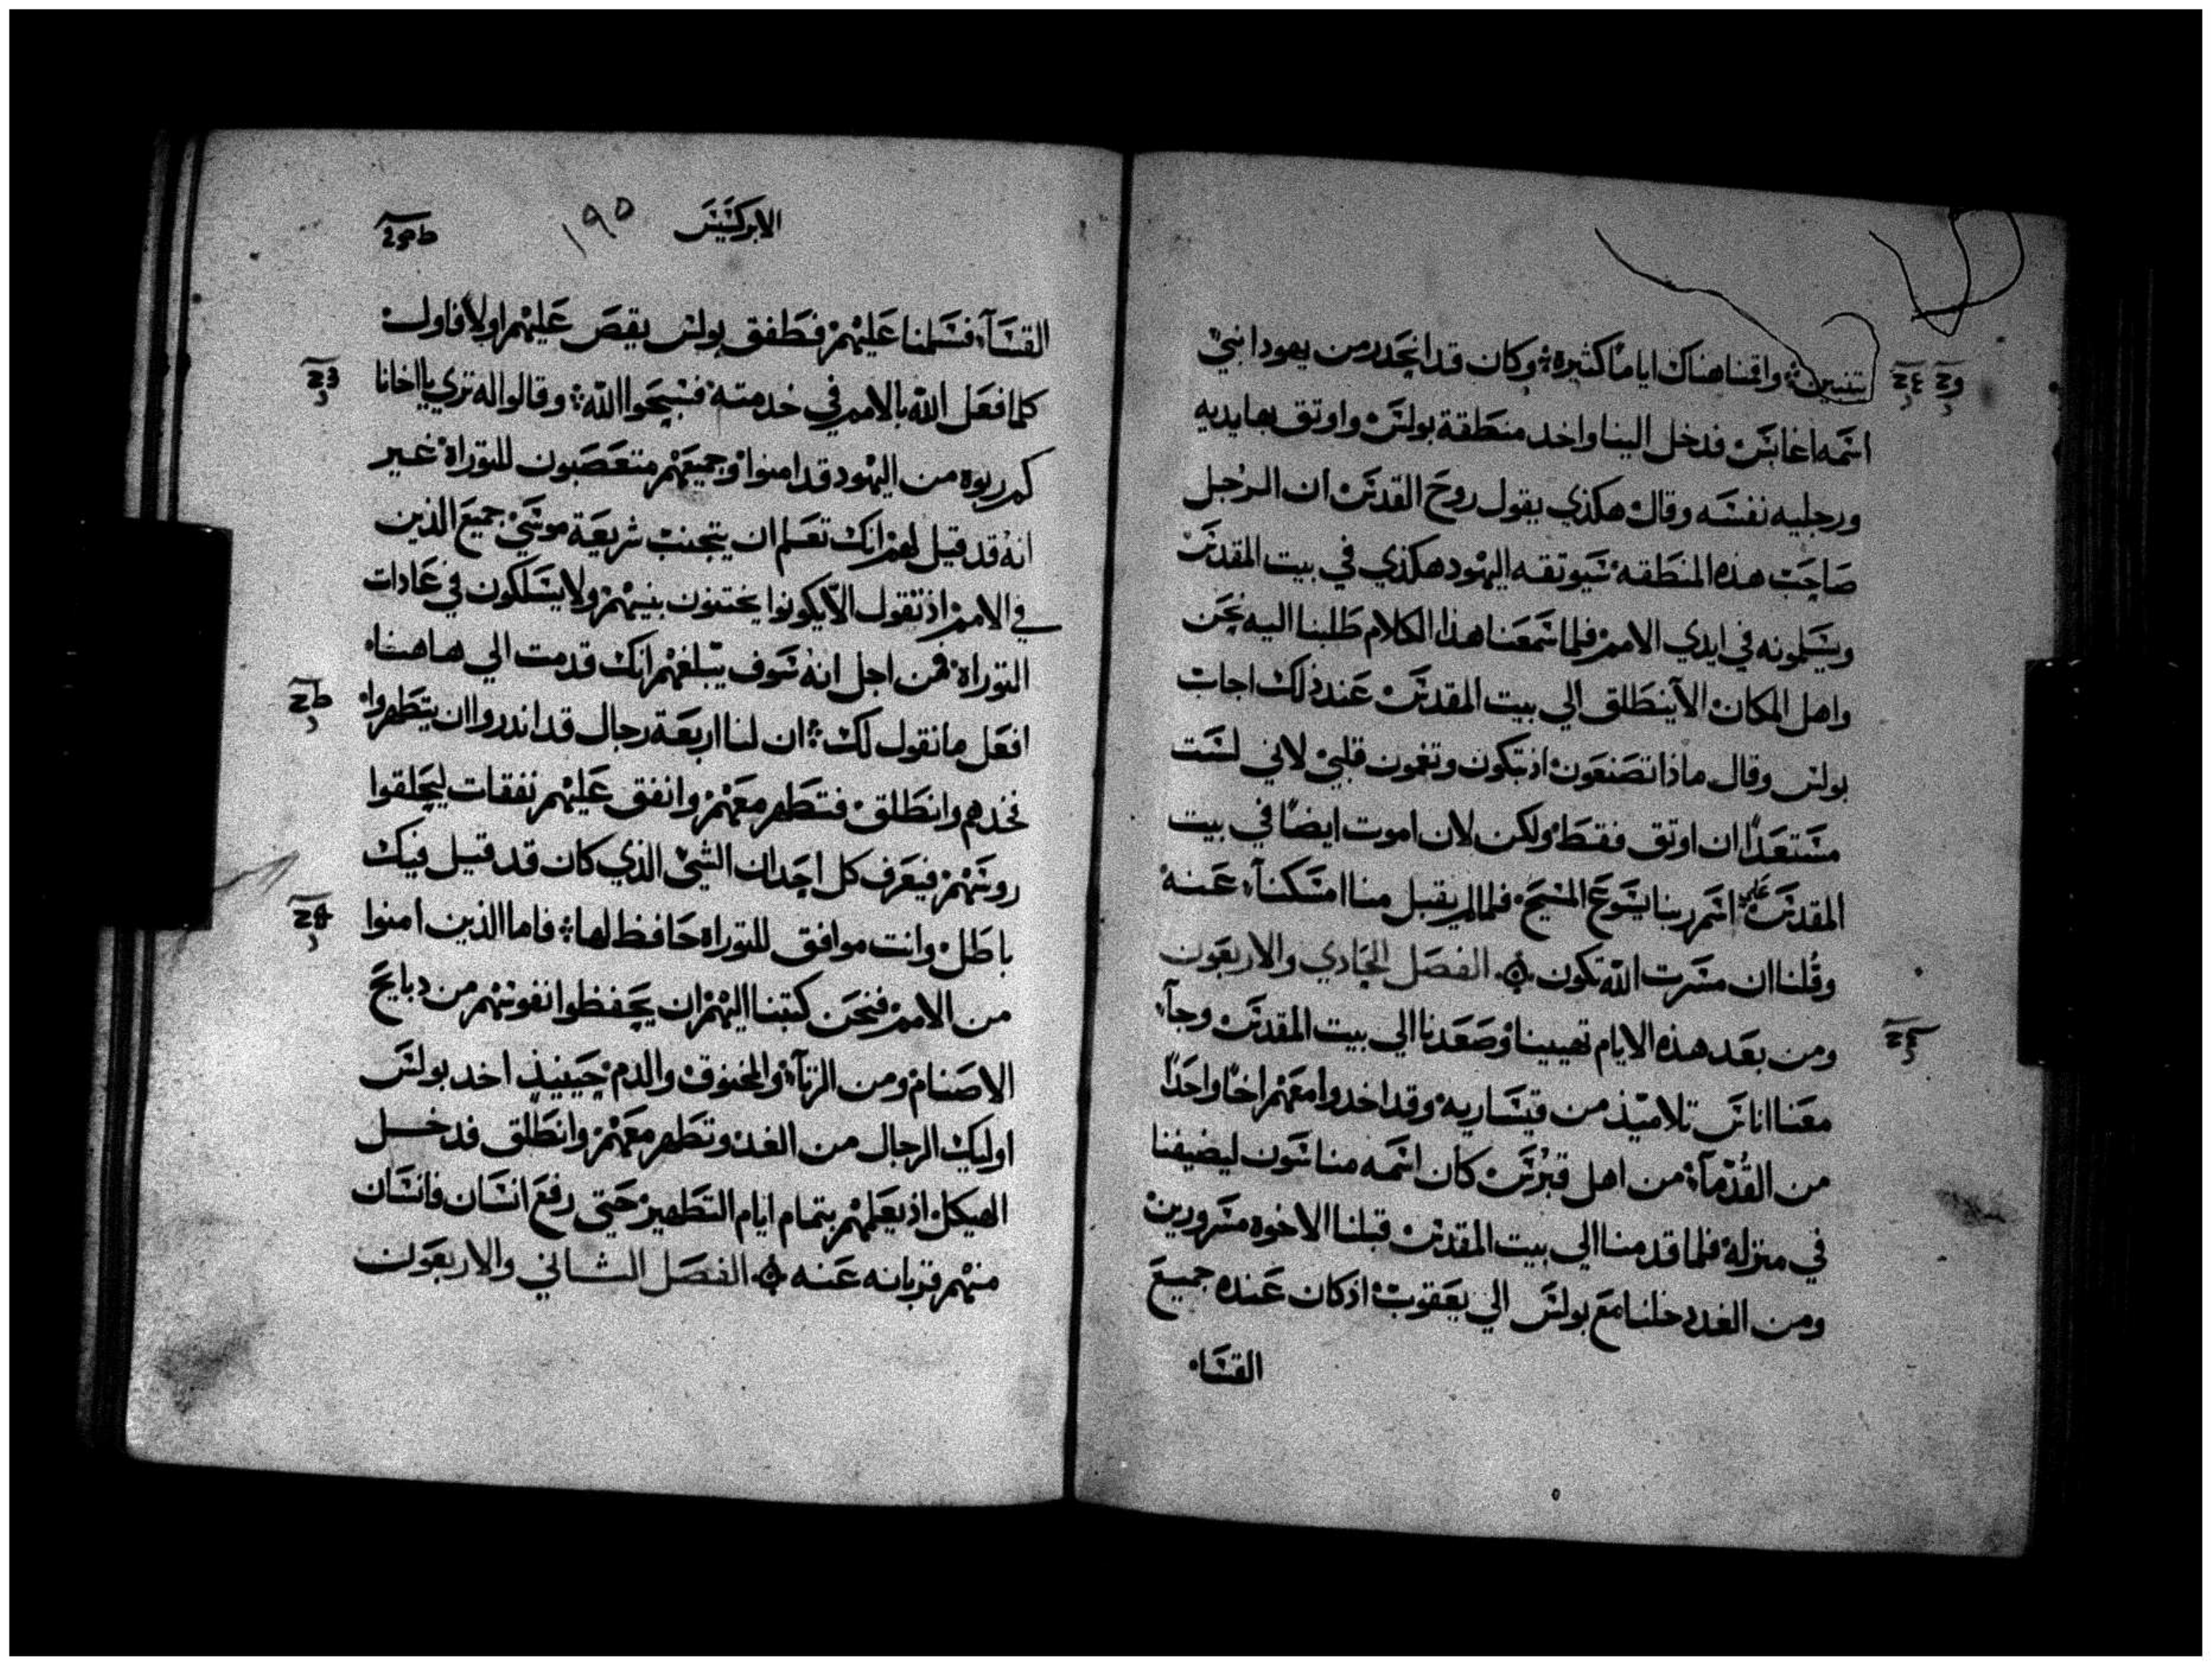 يتنبين ۞ واقمنا هناك اياما كثيره ۞ وكان قد انحدر من يهودا نبي
اسمه اغابس فدخل الينا واخد منطقة بولس واوتق بها يديه
ورجليه نفسه وقال هكذي يقول روح القدس ان الرجل
صاحب هذه المنطقه سيوتقه اليهود هكذي في بيت المقدس
ويسلمونه في ايدي الامم فلما سمعنا هذا الكلام طلبنا اليه نحن
واهل المكان الا ينطلق الي بيت المقدس عند ذلك اجاب
بولس وقال ماذا تصنعون اذ تبكون وتغمون قلبي لاني لست
مستعدا ان اوتق فقط ولكن لان اموت ايضا في بيت
المقدس علي اسم ربنا يسوع المسيح فلما لم يقبل منا امسكنا عنه
وقلنا ان مسرت الله تكون ۞ الفصل الحادي والاربعون
ومن بعد هذه الايام تهيينا وصعدنا الي بيت المقدس وجآ
معنا اناس تلاميذ من قيساريه وقد اخدوا معهم اخا واحدا
من القدمآ من اهل قبرس كان اسمه مناسون ليضيفنا
في منزله فلما قدمنا الي بيت المقدس قبلنا الاخوه مسرورين
ومن الغد دخلنا مع بولس الي يعقوب اذ كان عنده جميع
القسا
الابركسيس
١٩٥
القسآ فسلمنا عليهم فطفق بولس يقص عليهم اولا فاول
كلما فعل الله بالامم في خدمته فسبحوا الله ۞ وقالوا له تري يا اخانا
كم ربوة من اليهود قد امنوا وجميعهم متعصبون للتوراة غير
انه قد قيل لهم انك تعلم ان يتجنب شريعة موسي جميع الذين
في الامم اذ تقول الا يكونوا يختنون بنيهم ولا يسلكون في عادات
التوراة فمن اجل انه سوف يبلغهم انك قدمت الي هاهنا
افعل ما نقول لك ۞ ان لنا اربعة رجال قد اندروا ان يتطهروا
فخدهم وانطلق فتطهر معهم وانفق عليهم نفقات ليحلقوا
روسهم فيعرف كل احد ان الشي الذي كان قد قيل فيك
باطل وانت موافق للتوراة حافظ لها ۞ فاما الذين امنوا
من الامم فنحن كتبنا اليهم ان يحفظوا نفوسهم من دبايح
الاصنام ومن الزنآ والمخنوق والدم حينيذ اخد بولس
اوليك الرجال من الغد وتطهر معهم وانطلق فدخل
الهيكل اذ يعلمهم بتمام ايام التطهير حتي رفع انسان فانسان
منهم قربانه عنه ۞ الفصل الثاني والاربعون